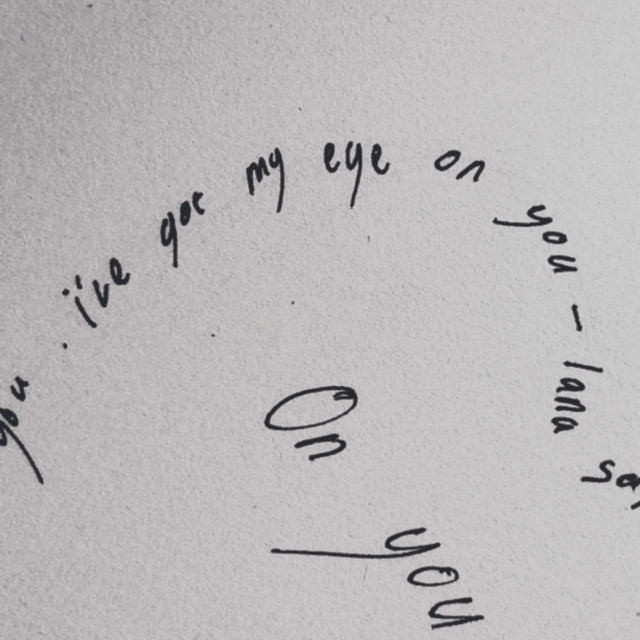 you . i've got my eye on you - lana sa
On
you